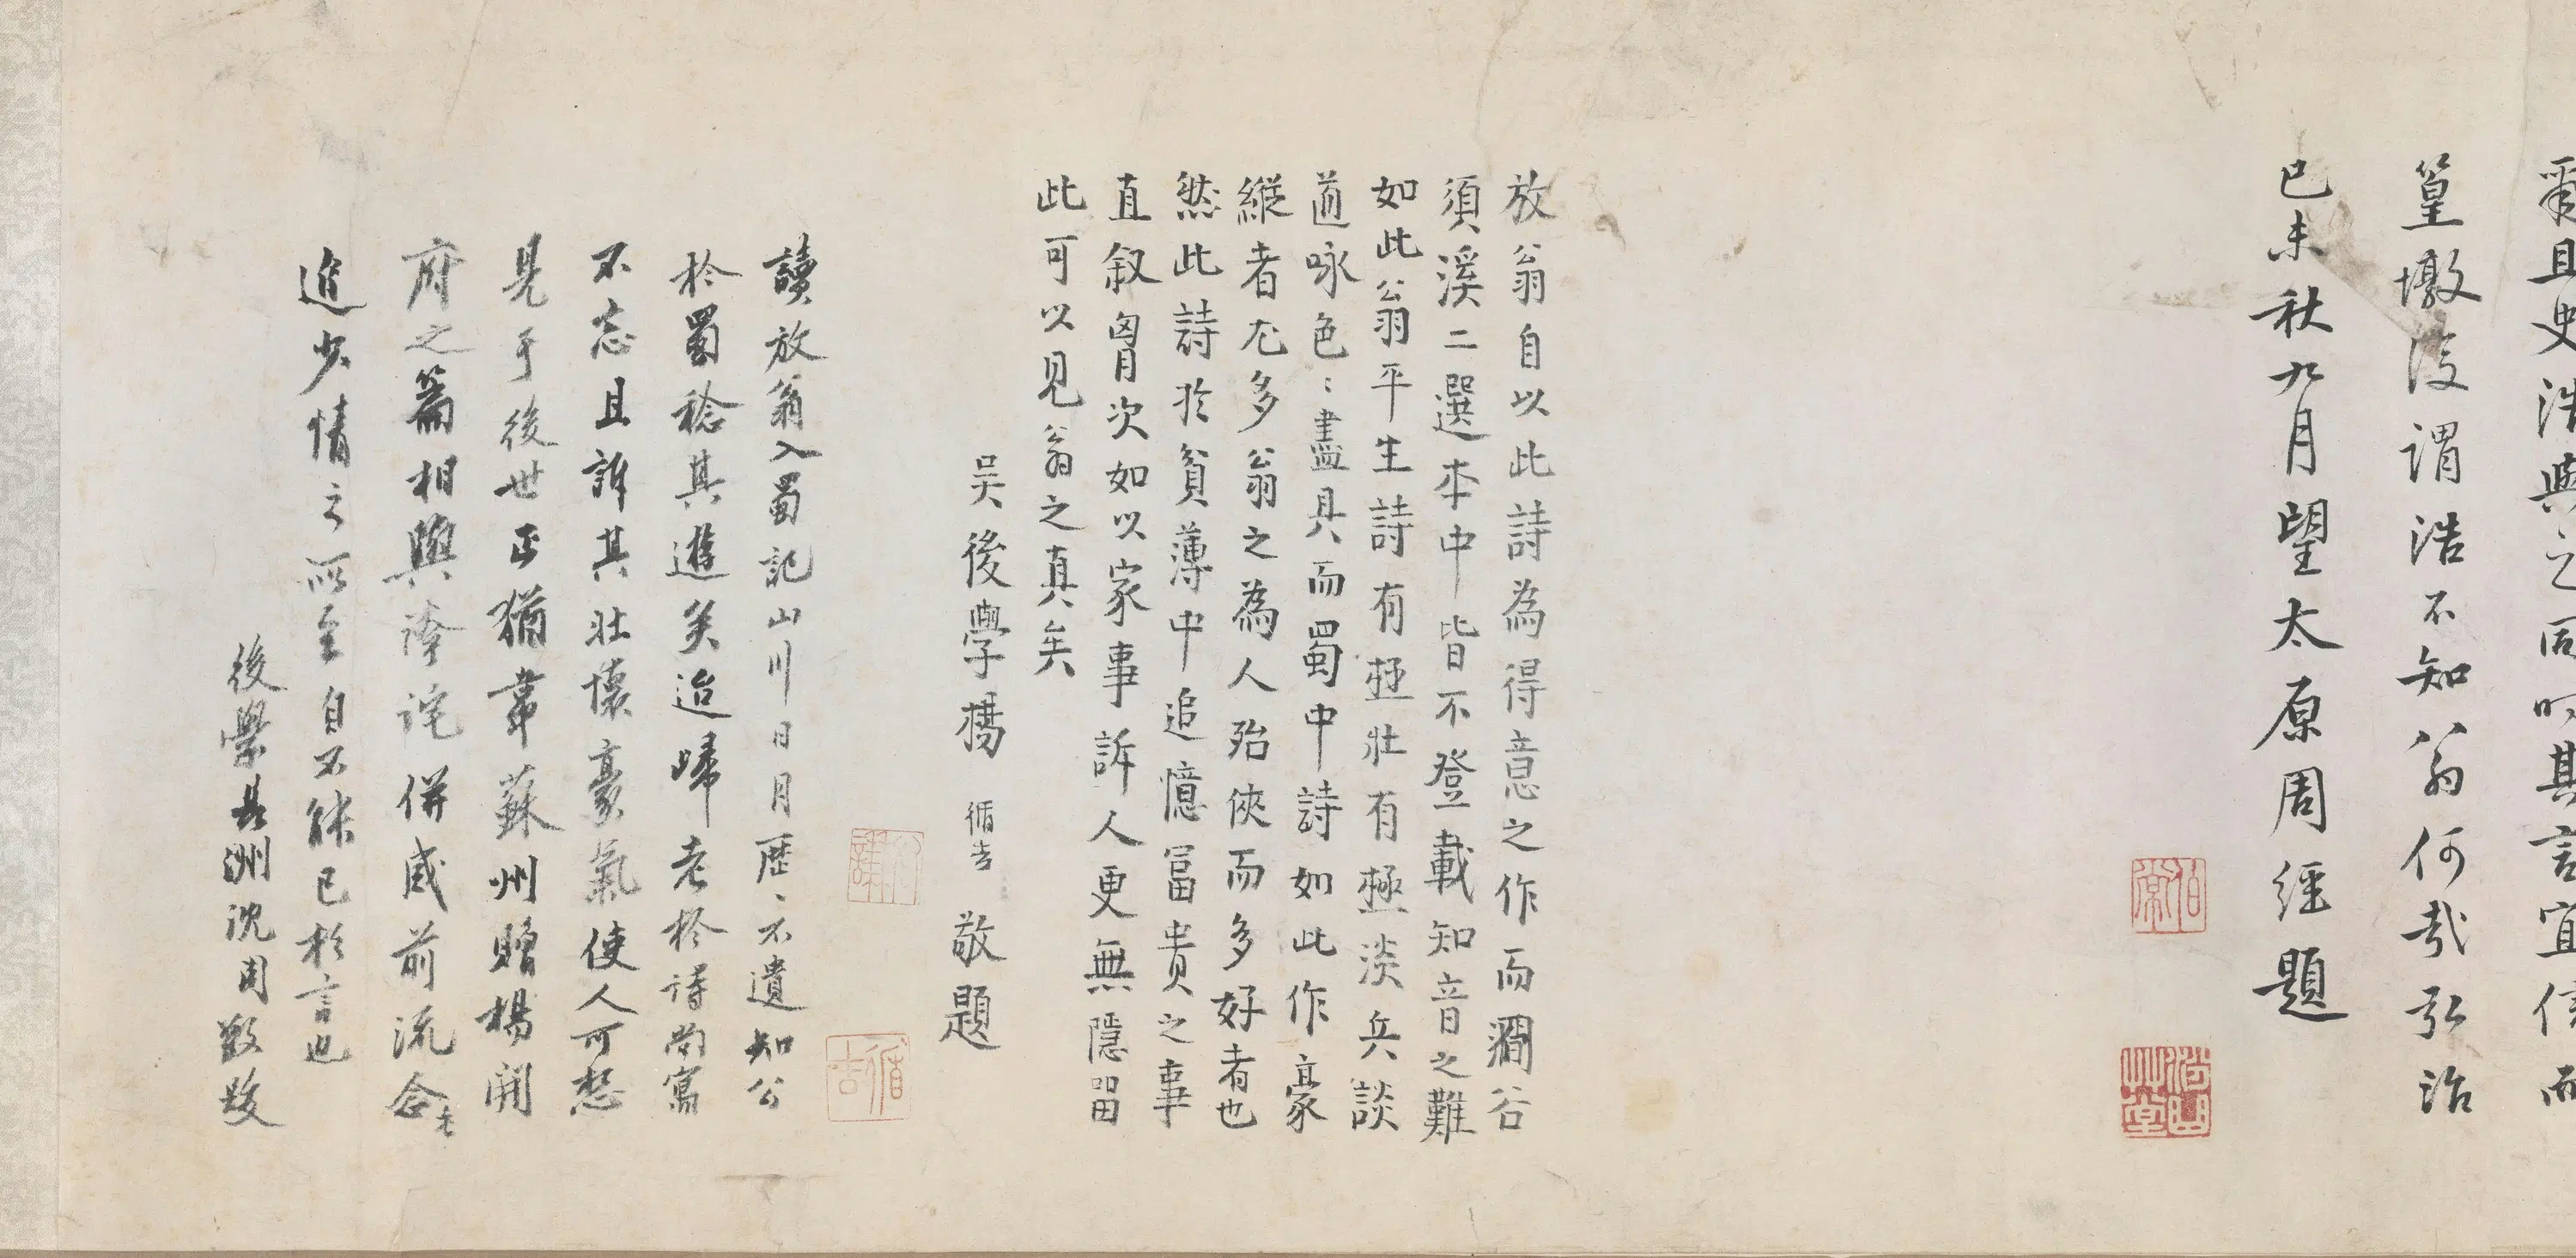 爾且史浩與之同時其言宜信而
篁墩復謂浩不知翁何哉弘治
已未秋九月望太原周經題
伯常
松山草堂
放翁自以此詩為得意之作而澗谷
須溪二選本中皆不登載知音之難
如此翁平生詩有極壯有極淡兵談
道咏色〻盡具而蜀中詩如此作豪
縱者尤多翁之為人殆俠而多好者也
然此詩於貧薄中追憶富貴之事
直叙胷次如以家事訴人更無隱留
此可以見翁之真矣
吴後學楊循吉敬題
循吉
讀放翁入蜀記山川日月歷〻不遺知公
於蜀稔其遊矣迨歸老於詩尚寓
不忘且訴其壯懷豪氣使人可想
見于後世正猶韋蘇州贈楊開
府之篇相與誇詫併感前流念老
進少情之所至自不能已於言也
後學長洲沈周敬跋